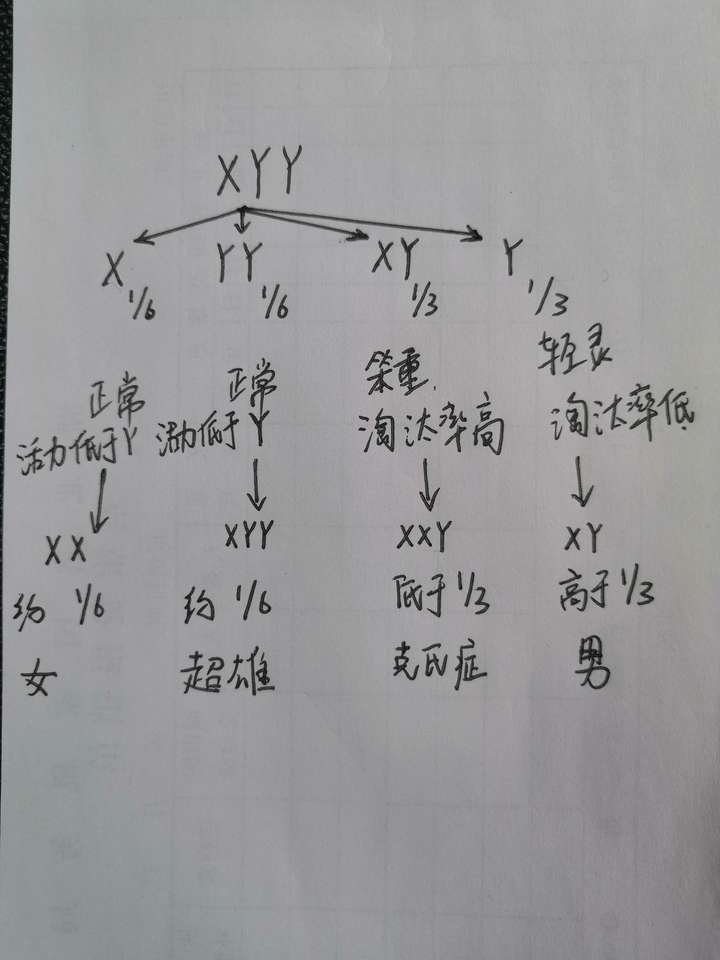 XYY
X 1/6 YY 1/6 XY 1/3 Y 1/3
正常 正常 笨重, 轻灵
活力低于Y 活力低于Y 淘汰率高 淘汰率低
XX XYY XXY XY
约 1/6 约 1/6 低于1/3 高于1/3
女 超雄 克氏症 男